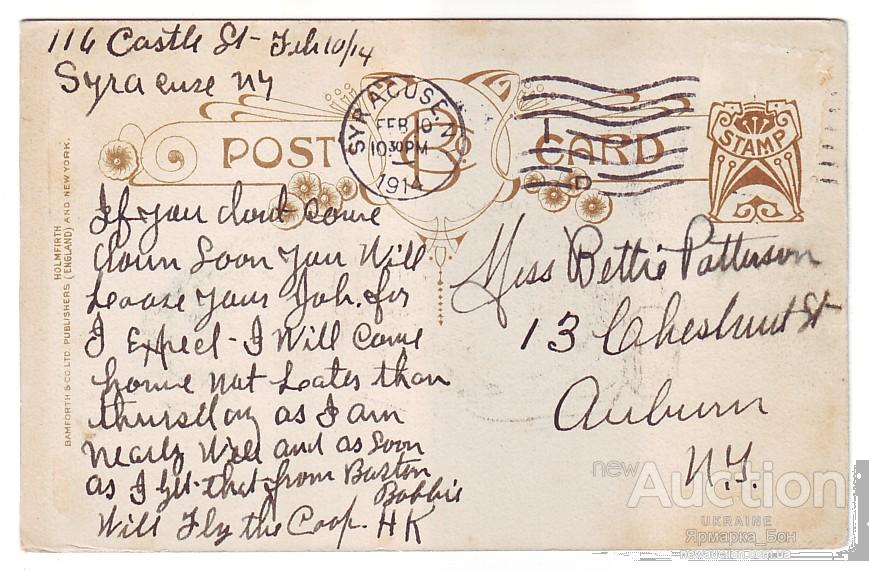 116 Castle St - Feb 10/14
Syracuse NY
POST CARD
B
SYRACUSE, N.Y.
FEB 10
10 30 PM
1914
STAMP
HOLMFIRTH
BAMFORTH & CO. LTD. PUBLISHERS (ENGLAND) AND NEW YORK.
If you dont come
down soon you Will
Loose your Job. for
I Expect - I Will Come
home not Later than
thursday as I am
nearly Well and as soon
as I get that from Boston
Bobbie
Will Fly the Coop. HK
Miss Bettie Patterson
13 Chestnut St
Auburn
N.Y.
newAuction
UKRAINE
Ярмарка_Бон
newauction.com.ua